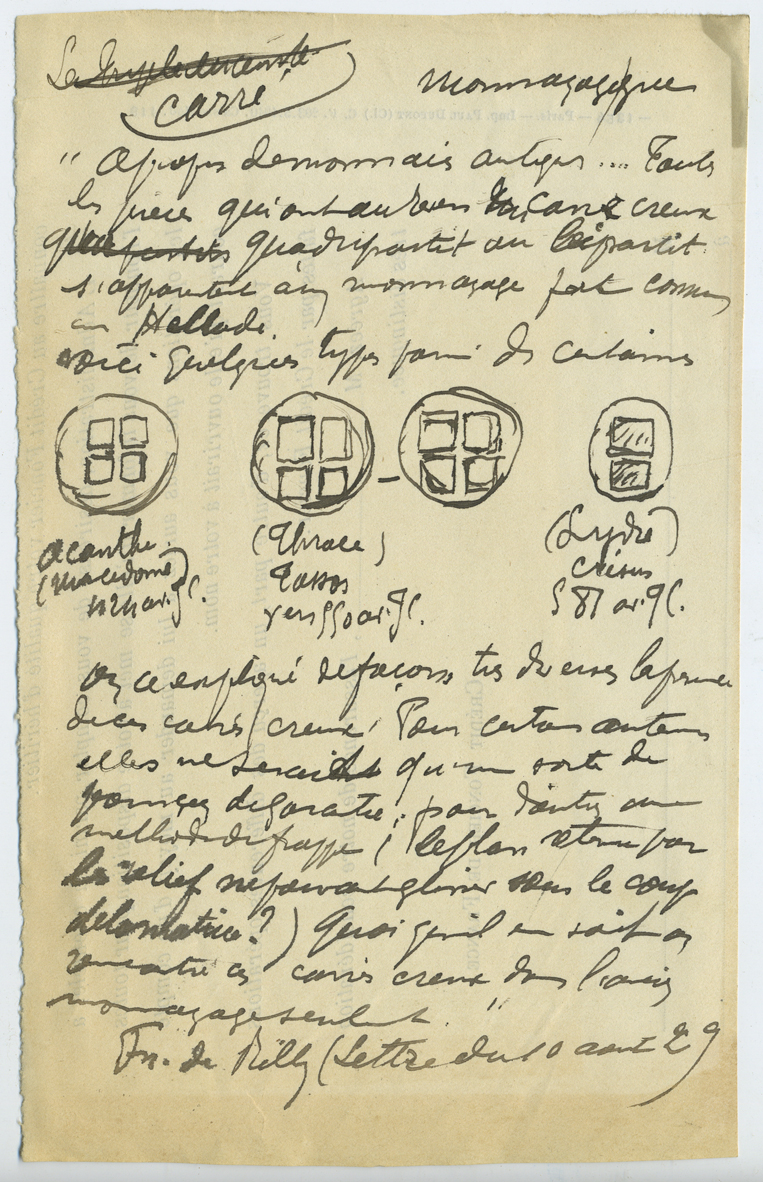 La
Carré
monnayage grec
" A propos de monnaies antiques .... Toutes
les pièces qui ont au revers un carré creux
quadripartit ou bipartit
s'apparentent à un monnayage fort connu
en Hellade.
voici quelques types parmi des centaines
Acanthe.
(Macédoine)
av. J.C.
(Thrace)
Tassos
vers 550 av. J.C.
(Lydie)
Crésus
561 av. J.C.
on a expliqué de façons très diverses la présence
de ces carrés creux. Pour certains auteurs
elles ne seraient qu'une sorte de
poinçon de garantie; pour d'autres une
méthode de frappe (le flan retenu par
le relief ne pouvant glisser sous le coup
de la matrice?) Quoi qu'il en soit on
rencontre ces carrés creux dans l'ancien
monnayage seulement. "
Fr. de Rilly (Lettre du 10 août 29